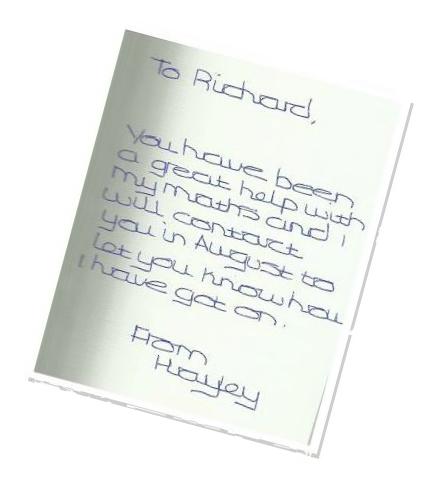 To Richard,
You have been
a great help with
my maths and I
will contact
you in August to
let you know how
I have got on.
From
Hayley